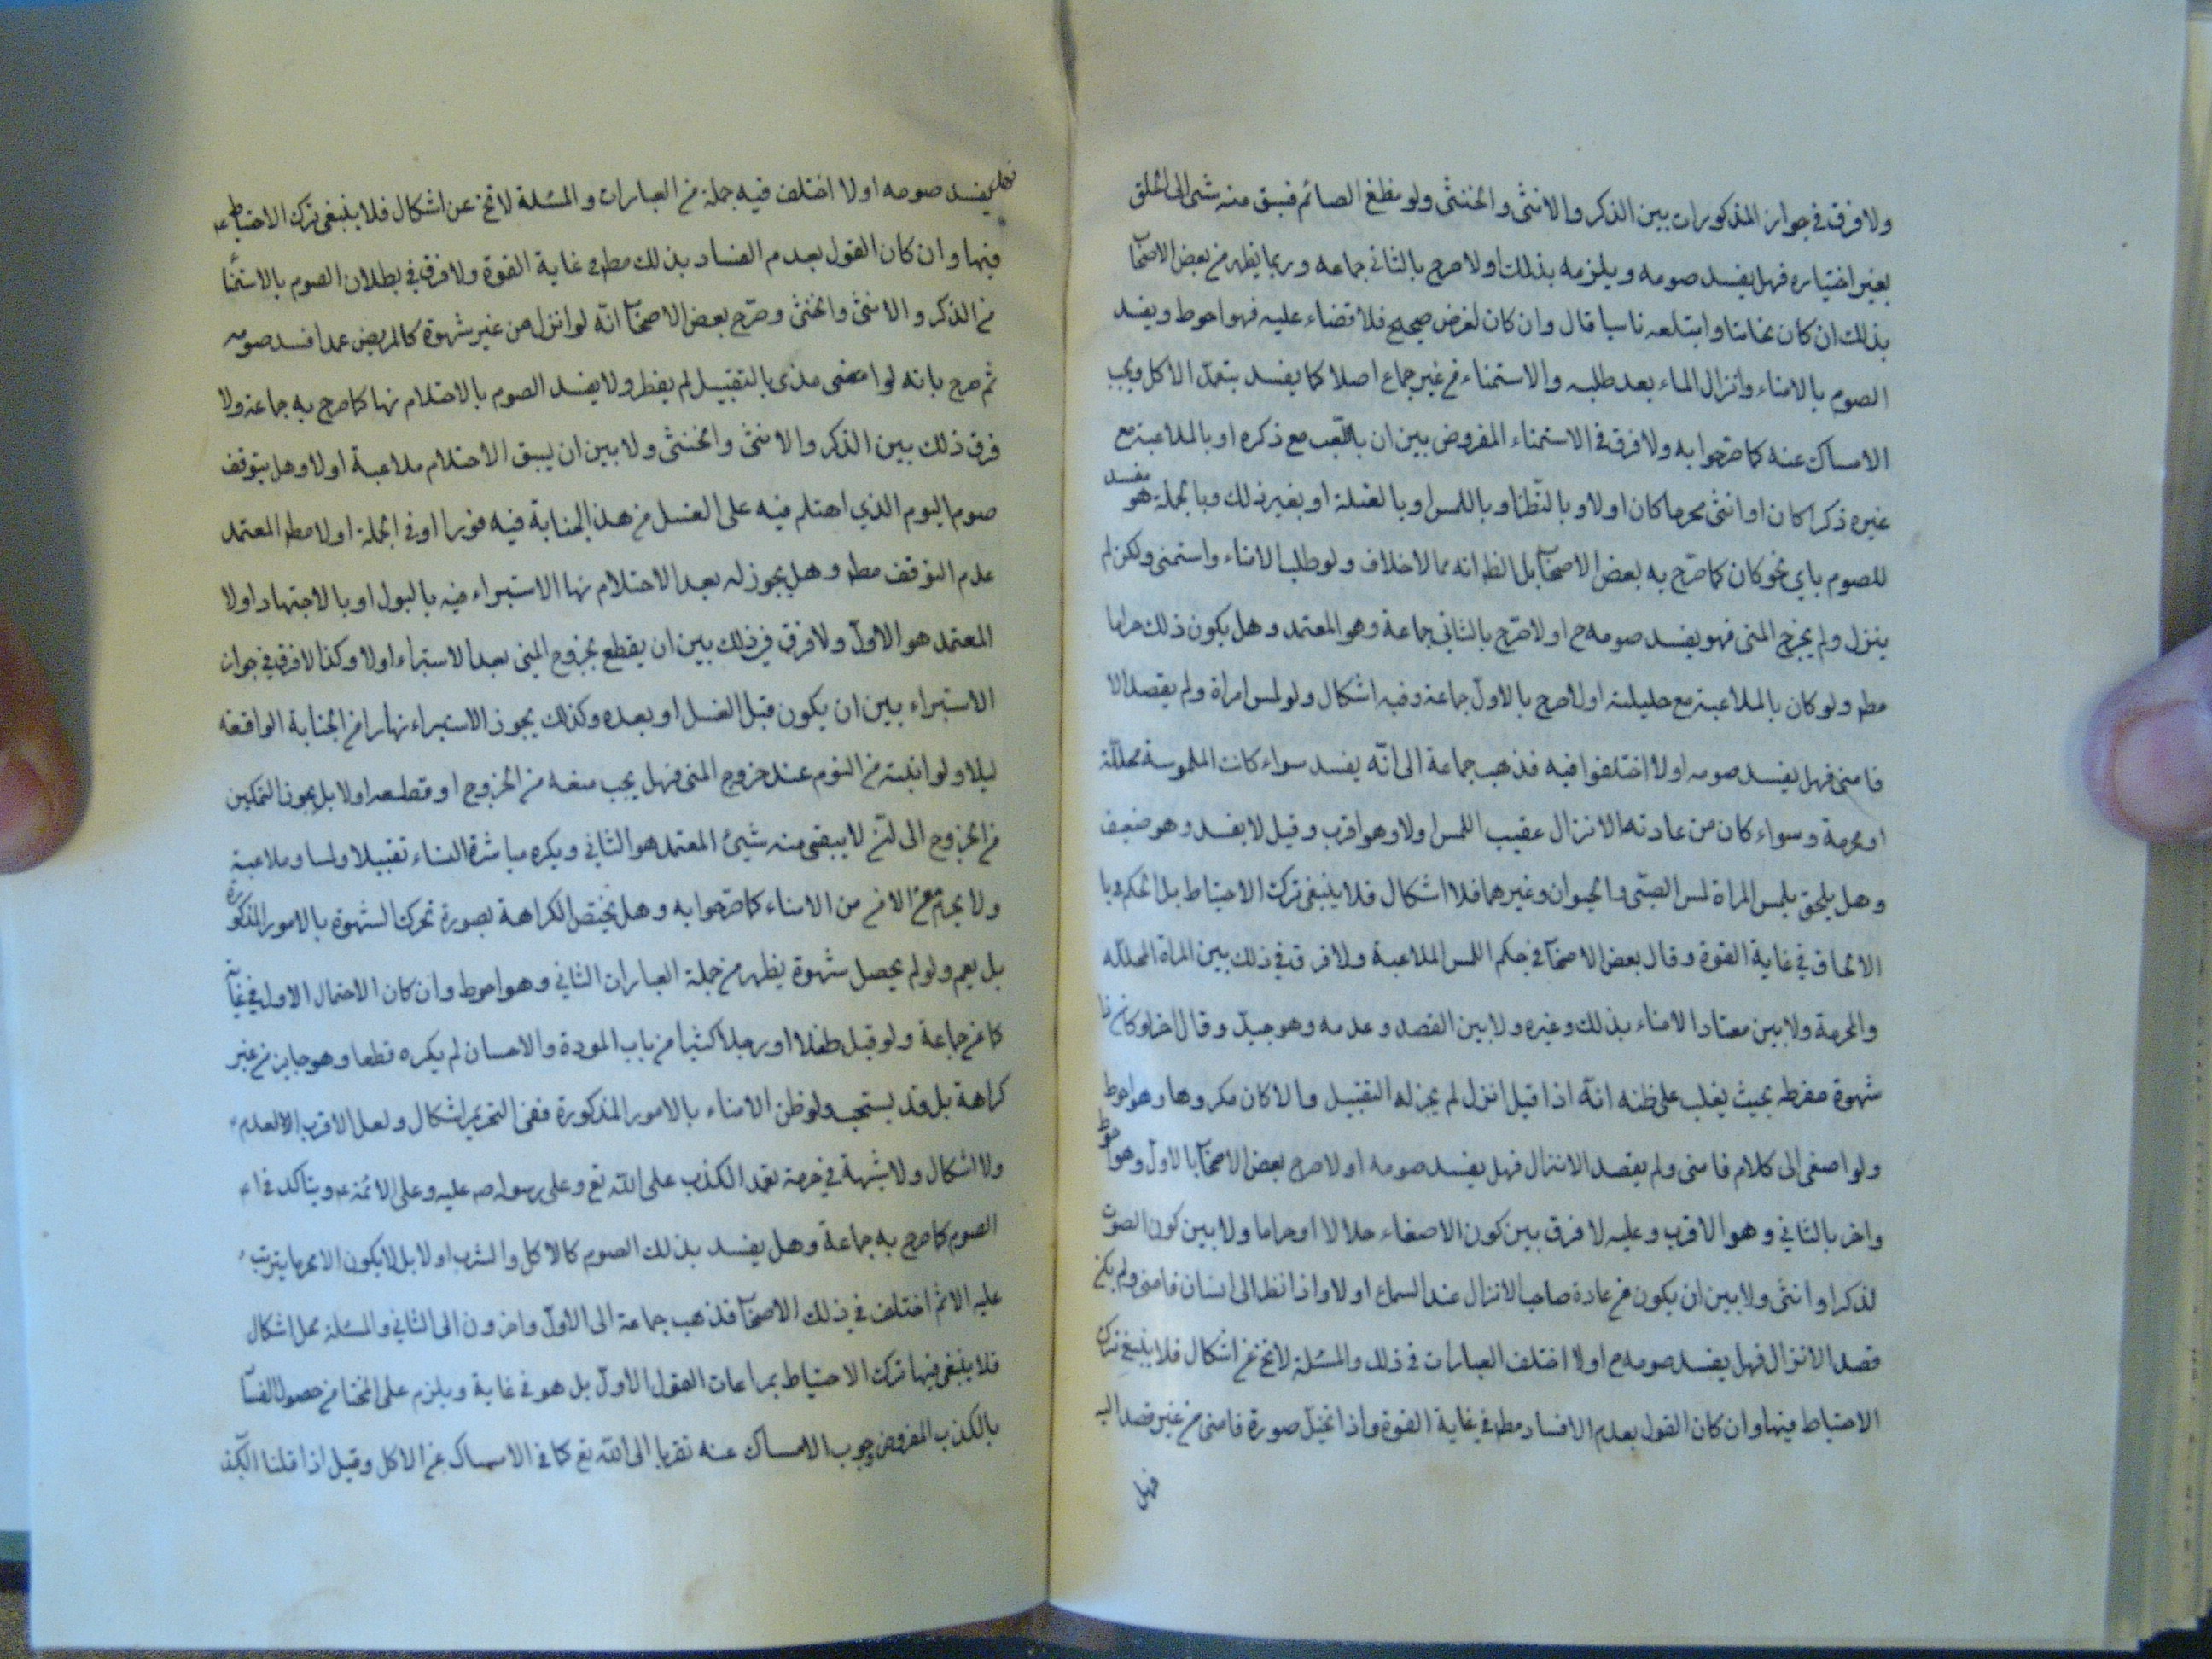 ولا فرق في جواز المذكورات بين الذكر والانثى والخنثى ولو مظغ الصائم فسبق منه شئ الى الحلق
بغير اختياره فهل يفسد صومه ويلزمه بذلك اولا صرح بالثاني جماعه وربما يظهر من بعض الاصحاب
بذلك ان كان عابثا وابتلعه ناسيا قال وان كان لغرض صحيح فلا قضاء عليه فهو احوط ويفسد
الصوم بالامناء وانزال الماء بعد طلبه والاستمناء من غير جماع اصلا كما يفسد بتعمد الاكل ويجب
الامساك عنه كما صرحوا به ولا فرق في الاستمناء المفروض بين ان يلعب مع ذكره او بالملاعبة مع
غيره ذكرا كان او انثى محرما كان اولا وبالنظر او باللمس او بالقبلة او بغير ذلك وبالجملة هو مفسد
للصوم باي نحو كان كما صرح به بعض الاصحاب بل الظ انه مما لا خلاف ولو طلب الامناء واستمنى ولكن لم
ينزل ولم يخرج المنى فهو يفسد صومه ح اولا صرح بالثاني جماعة وهو المعتمد وهل يكون ذلك حراما
مط ولو كان بالملاعبة مع حليلته اولا صرح بالاول جماعة وفيه اشكال ولو لمس امراة ولم يقصد الا
فامنى فهل يفسد صومه اولا اختلفوا فيه فذهب جماعة الى انه يفسد سواء كانت الملموسة محللة
او محرمة وسواء كان من عادته الانزال عقيب اللمس اولا وهو اقرب وقيل لا يفسد وهو ضعيف
وهل يلحق بلمس المراة لمس الصبى والحيوان وغيرهما فلا اشكال فلا ينبغى ترك الاحتياط بل الحكم با
الالحاق في غاية القوة وقال بعض الاصحاب في حكم اللمس الملاعبة ولا فرق في ذلك بين المراة المحللة
والمحرمة ولا بين معتاد الامناء بذلك وغيره ولا بين القصد وعدمه وهو جيد وقال اخر لو كان ذا
شهوة مفرطه بحيث يغلب على ظنه انه اذا قبل انزل لم يجز له التقبيل والا كان مكروها وهو احوط
ولو اصغى الى كلام فامنى ولم يقصد الانزال فهل يفسد صومه اولا صرح بعض الاصحاب بالاول وهو احوط
واخر بالثاني وهو الاقرب وعليه لا فرق بين كون الاصغاء حلالا او حراما ولا بين كون الصوت
لذكر او انثى ولا بين ان يكون من عادة صاحب الانزال عند السماع اولا واذا نظر الى انسان فامنى ولم يكن
قصد الانزال فهل يفسد صومه ح اولا اختلف العبارات في ذلك والمسئلة لا تخ عن اشكال فلا ينبغي ترك
الاحتياط فيها وان كان القول بعدم الافساد مط في غاية القوة واذا تخيل صورة فامنى من غير قصد اليه
فهل
فهل يفسد صومه اولا اختلف فيه جملة من العبارات والمسئلة لا تخ عن اشكال فلا ينبغى ترك الاحتياط
فيها وان كان القول بعدم الفساد بذلك مط في غاية القوة ولا فرق في بطلان الصوم بالاستمنا
من الذكر والانثى والخنثى وصرح بعض الاصحاب انه لو انزل من غير شهوة كالمريض عمدا فسد صومه
ثم صرح بانه لو امذى بالتقبيل لم يفطر ولا يفسد الصوم بالاحتلام نهارا كما صرح به جماعة ولا
فرق ذلك بين الذكر والانثى والخنثى ولا بين ان يسبق الاحتلام ملاعبة اولا وهل يتوقف
صوم اليوم الذي احتلم فيه على الغسل من هذ الجنابة فيه فورا او في الجملة اولا مط المعتمد
عدم التوقف مط وهل يجوز له بعد الاحتلام نهارا الاستبراء فيه بالبول او بالاجتهاد اولا
المعتمد هو الاول ولا فرق في ذلك بين ان يقطع بخروج المنى بعد الاستبراء اولا وكذا لا فرق في جواز
الاستبراء بين ان يكون قبل الغسل او بعده وكذلك يجوز الاستبراء نهارا من الجنابة الواقعة
ليلا ولو انتبه من النوم عند خروج المنى فهل يجب منعه من الخروج او قطعه اولا بل يجوز التمكين
من الخروج الى ان لا يبقى منه شيئ المعتمد هو الثاني ويكره مباشرة النساء تقبيلا ولمسا وملاعبة
ولا يحرم مع الامن من الامناء كما صرحوا به وهل يختص الكراهة بصورة تحرك الشهوة بالامور المذكورة
بل يعم ولو لم يحصل شهوة يظهر من جملة العبارات الثاني وهو احوط وان كان الاحتمال الاول في غاية
كما عن جماعة ولو قبل طفلا او رجلا كثيرا من باب المودة والاحسان لم يكره قطعا وهو جايز من غير
كراهة بل قد يستحب ولو ظن الامناء بالامور المذكورة ففى التحريم اشكال ولعل الاقرب العدم
ولا اشكال ولا شبهة في حرمة تعمد الكذب على الله تع وعلى رسوله ص عليه وعلى الائمة ع ويتاكد في
الصوم كما صرح به جماعة وهل يفسد بذلك الصوم كالاكل والشرب اولا بل لا يكون الا محرما يترتب
عليه الاثم اختلف في ذلك الاصحاب فذهب جماعة الى الاول واخرون الى الثاني والمسئلة محل اشكال
فلا ينبغى فيها ترك الاحتياط بمراعات القول الاول بل هو في غاية ويلزم على المختار من حصول الفساد
بالكذب المفروض وجوب الامساك عنه تقربا الى الله تع كما في الامساك عن الاكل وقيل اذا قلنا الكذ